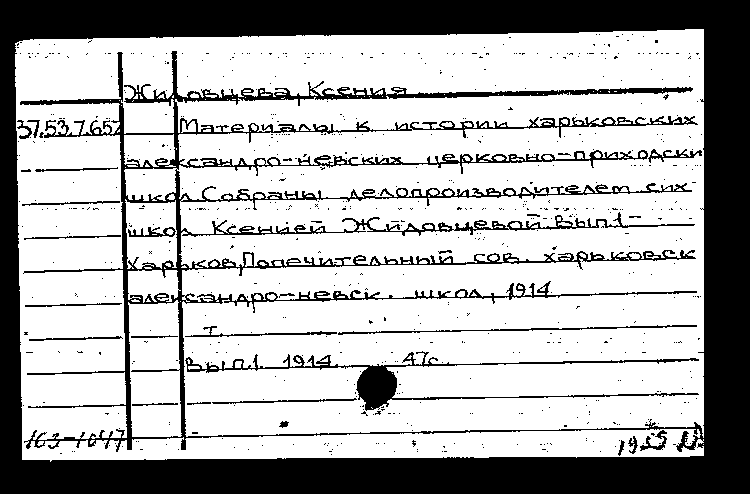 Жидовцева, Ксения
37.53.7.657 Материалы к истории харьковских
александро-невских церковно-приходски
школ. Собраны делопроизводителем сих
школ Ксенией Жидовцевой. Вып.1-
Харьков, Попечительный сов. харьковск
александро-невск. школ, 1914
т.
Вып.1. 1914. 47с.
163-1047